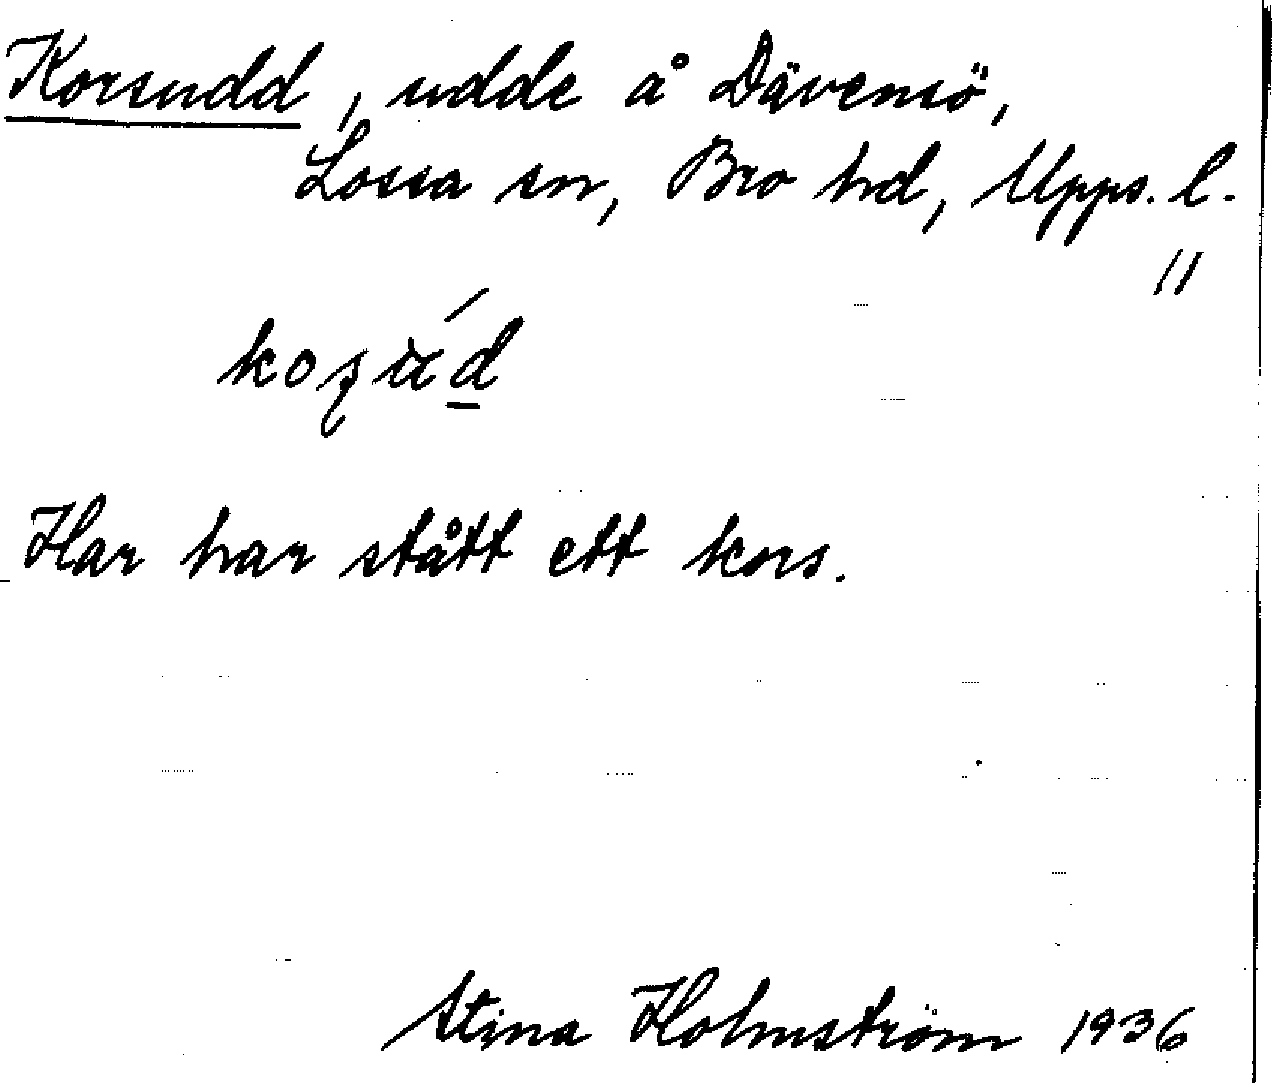 Korsudd, udde å Dävensö,
Lossa sn, Bro hd, Upps. l.
11
Har har stått ett kors.
Stina Holmström 1936